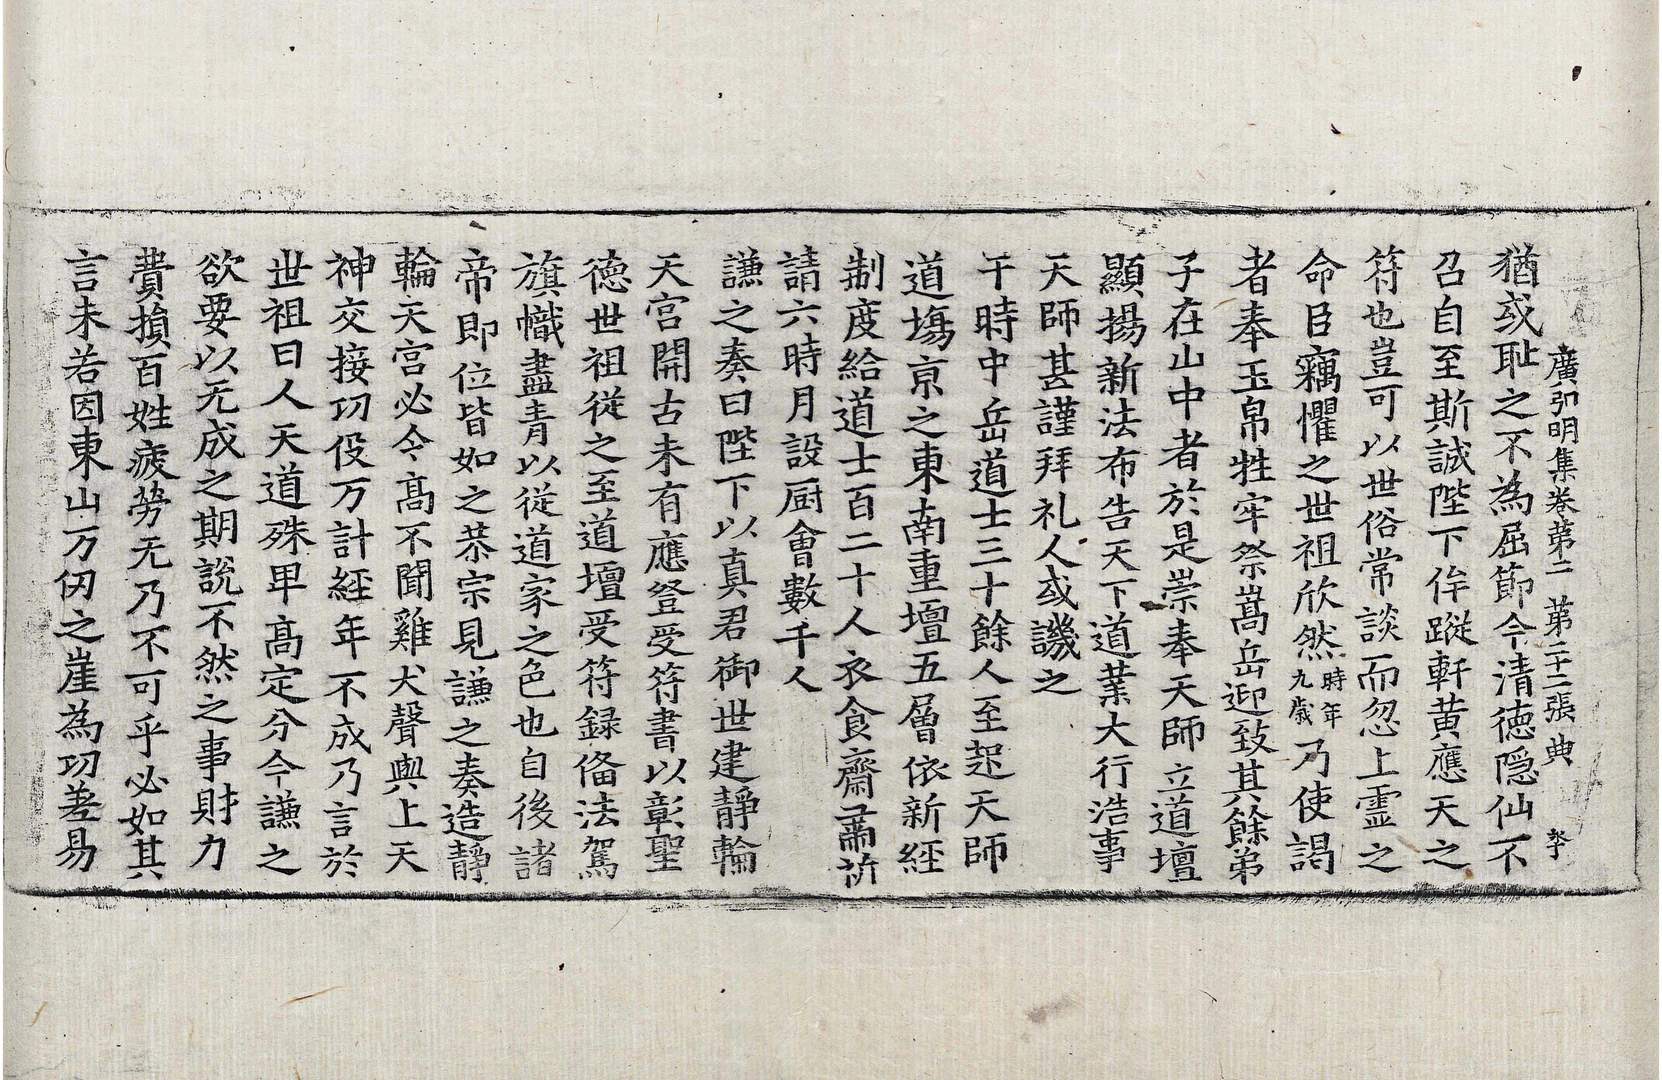 廣弘明集卷第二 第二十二張 典
猶或耻之不為屈節今清德隱仙不
召自至斯誠陛下侔蹤軒黃應天之
符也豈可以世俗常談而忽上霊之
命臣竊懼之世祖欣然時年九歲乃使謁
者奉玉帛牲牢祭嵩岳迎致其餘弟
子在山中者於是崇奉天師立道壇
顯揚新法布告天下道業大行浩事
天師甚謹拜礼人或譏之
于時中岳道士三十餘人至起天師
道塲京之東南重壇五層依新經
制度給道士百二十人衣食齋肅祈
請六時月設厨會數千人
謙之奏曰陛下以真君御世建靜輪
天宮開古未有應登受符書以彰聖
德世祖從之至道壇受符録俻法駕
旗幟盡青以從道家之色也自後諸
帝即位皆如之恭宗見謙之奏造靜
輪天宮必令髙不聞雞犬聲與上天
神交接功役万計経年不成乃言於
世祖曰人天道殊早髙定分今謙之
欲要以无成之期說不然之事財力
費損百姓疲勞无乃不可乎必如其
言未若因東山万仞之崖為功差易